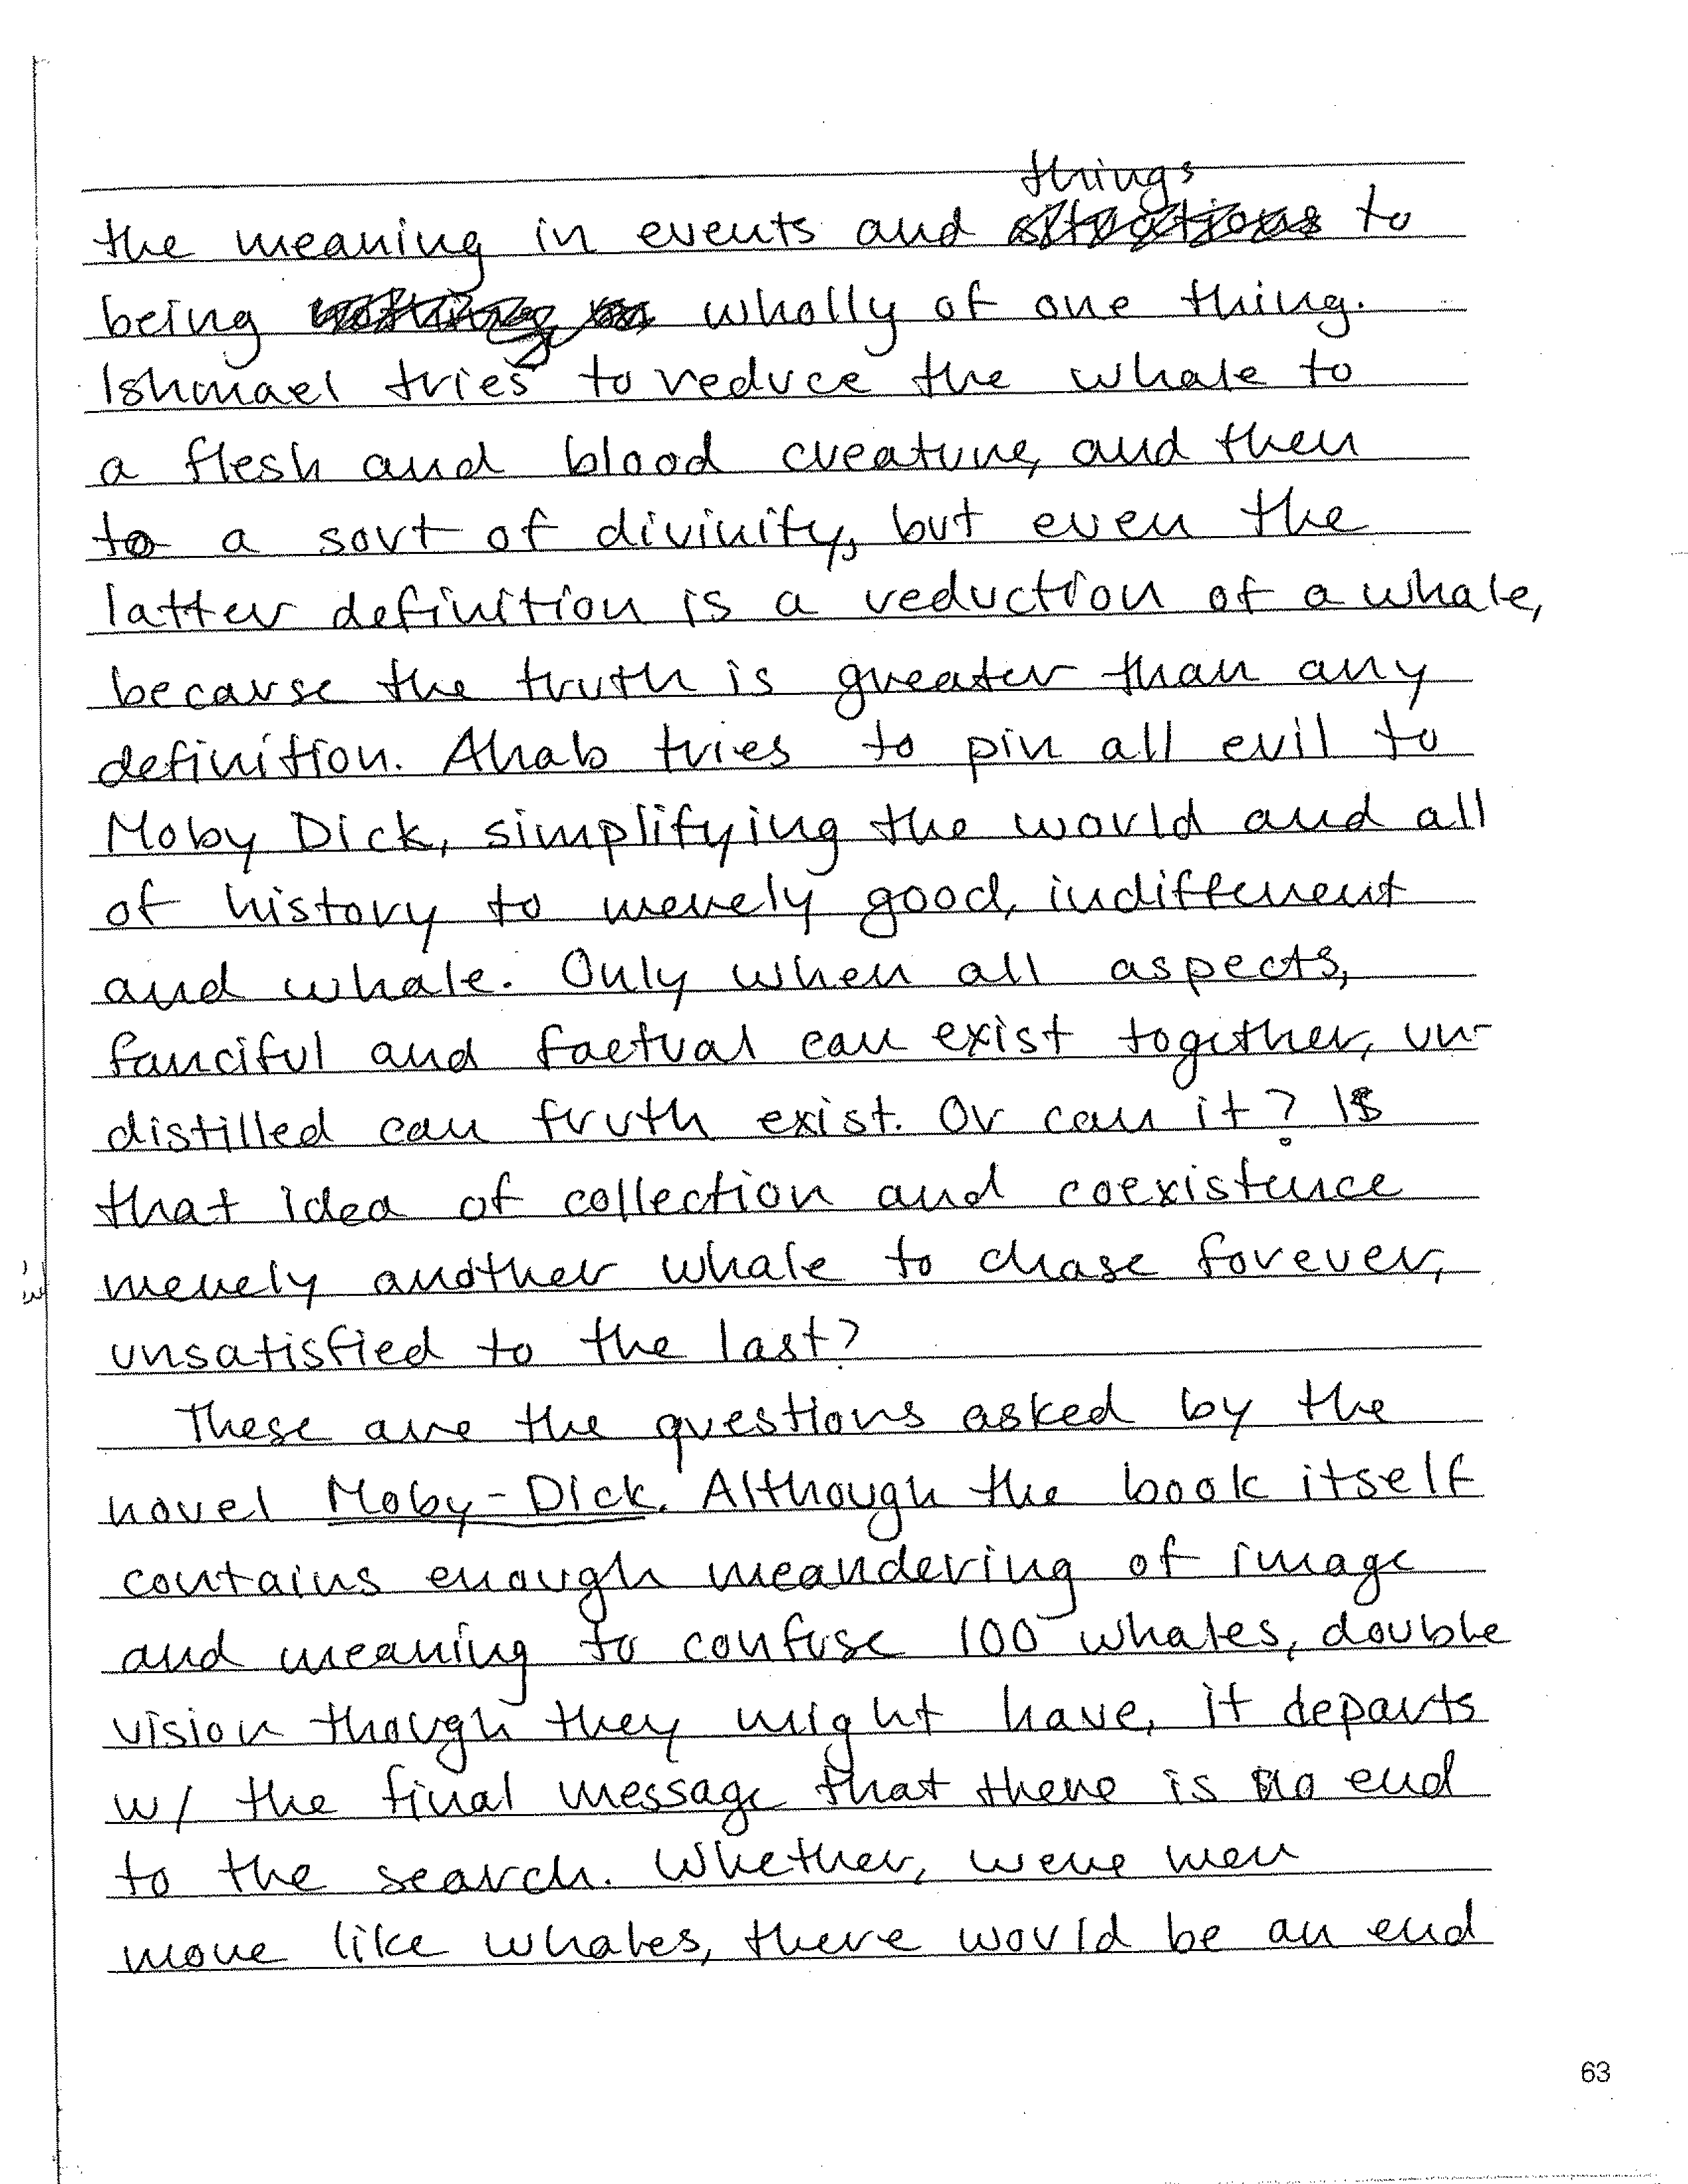 things
the meaning in events and situations to
being nothing wholly of one thing.
Ishmael tries to reduce the whale to
a flesh and blood creature, and then
to a sort of divinity, but even the
latter definition is a reduction of a whale,
because the truth is greater than any
definition. Ahab tries to pin all evil to
Moby Dick, simplifying the world and all
of history to merely good, indifferent
and whale. Only when all aspects,
fanciful and factual can exist together, un-
distilled can truth exist. Or can it? Is
that idea of collection and coexistence
merely another whale to chase forever,
unsatisfied to the last?
These are the questions asked by the
novel Moby-Dick. Although the book itself
contains enough meandering of image
and meaning to confuse 100 whales, double
vision though they might have, it departs
w/ the final message that there is no end
to the search. Whether, were men
more like whales, there would be an end
63